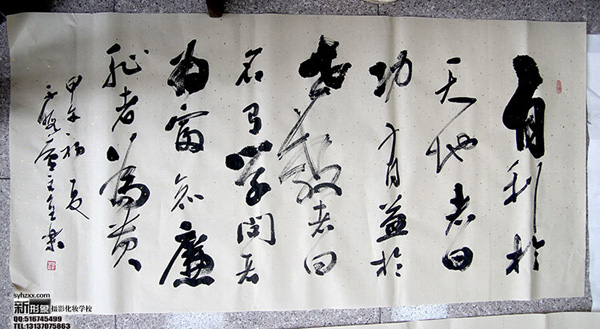 有利於
天地者曰
功有益於
世教者曰
名有學問者
为富知廉
耻者為贵
甲午初夏
syhzxx.com
新形象摄影化妆学校
QQ:516745499
TEL:13137075863